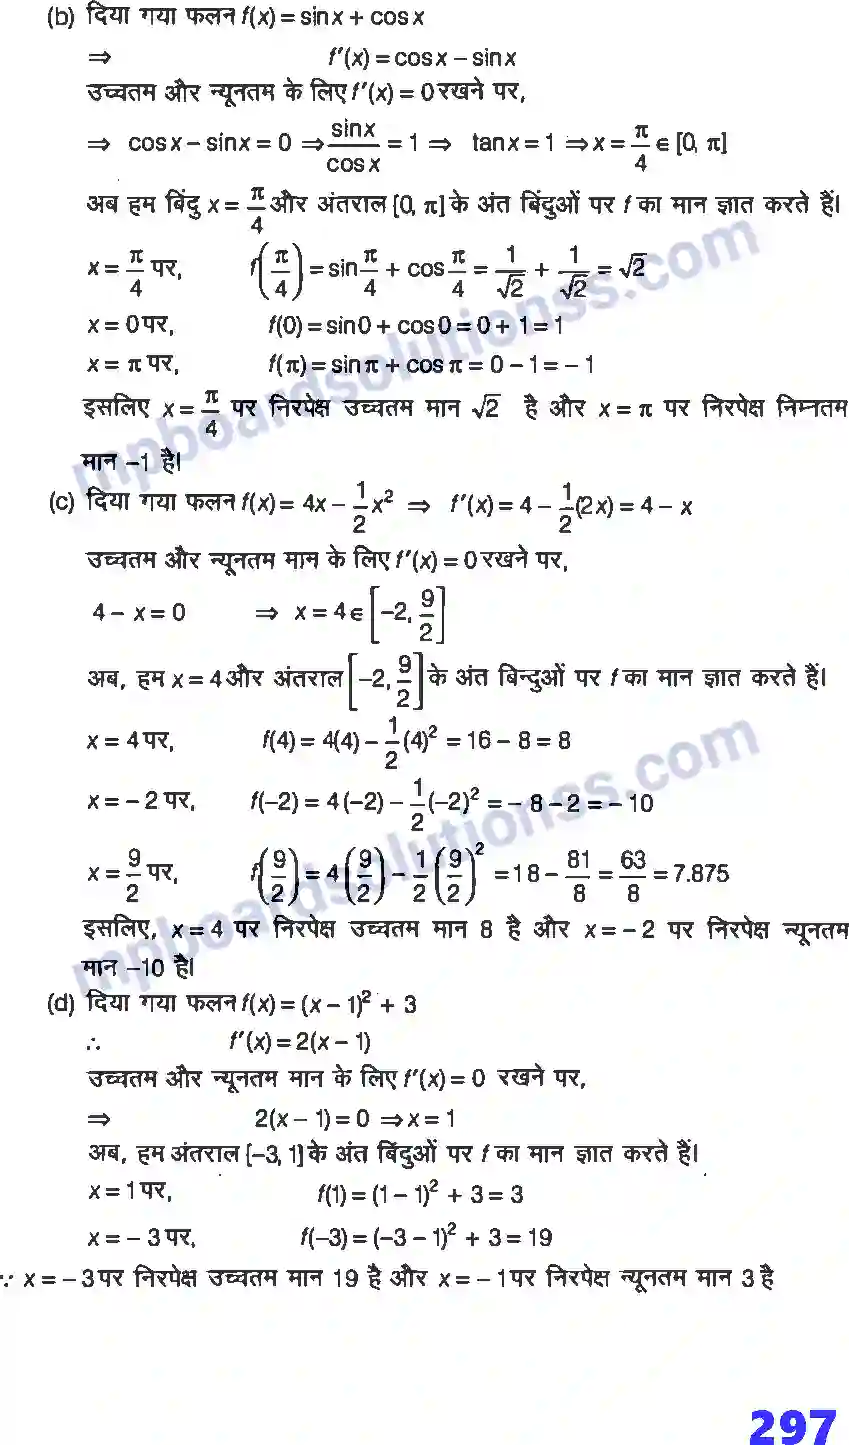 (b) दिया गया फलन f(x) = sin x + cos x
⇒ f′(x) = cos x – sin x
उच्चतम और न्यूनतम के लिए f′(x) = 0 रखने पर,
⇒ cos x – sin x = 0 ⇒ sin x/cos x = 1 ⇒ tan x = 1 ⇒ x = π/4 ∈ [0, π]
अब हम बिंदु x = π/4 और अंतराल [0, π] के अंत बिंदुओं पर f का मान ज्ञात करते हैं।
x = π/4 पर, f(π/4) = sin π/4 + cos π/4 = 1/√2 + 1/√2 = √2
x = 0 पर, f(0) = sin 0 + cos 0 = 0 + 1 = 1
x = π पर, f(π) = sin π + cos π = 0 – 1 = – 1
इसलिए x = π/4 पर निरपेक्ष उच्चतम मान √2 है और x = π पर निरपेक्ष निम्नतम
मान –1 है।
(c) दिया गया फलन f(x) = 4x – 1/2 x² ⇒ f′(x) = 4 – 1/2 (2x) = 4 – x
उच्चतम और न्यूनतम मान के लिए f′(x) = 0 रखने पर,
4 – x = 0 ⇒ x = 4 ∈ [–2, 9/2]
अब, हम x = 4 और अंतराल [–2, 9/2] के अंत बिन्दुओं पर f का मान ज्ञात करते हैं।
x = 4 पर, f(4) = 4(4) – 1/2 (4)² = 16 – 8 = 8
x = – 2 पर, f(–2) = 4 (–2) – 1/2 (–2)² = – 8 – 2 = – 10
x = 9/2 पर, f(9/2) = 4 (9/2) – 1/2 (9/2)² = 18 – 81/8 = 63/8 = 7.875
इसलिए, x = 4 पर निरपेक्ष उच्चतम मान 8 है और x = – 2 पर निरपेक्ष न्यूनतम
मान –10 है।
(d) दिया गया फलन f(x) = (x – 1)² + 3
∴ f′(x) = 2(x – 1)
उच्चतम और न्यूनतम मान के लिए f′(x) = 0 रखने पर,
⇒ 2(x – 1) = 0 ⇒ x = 1
अब, हम अंतराल [–3, 1] के अंत बिंदुओं पर f का मान ज्ञात करते हैं।
x = 1 पर, f(1) = (1 – 1)² + 3 = 3
x = – 3 पर, f(–3) = (–3 – 1)² + 3 = 19
∵ x = – 3 पर निरपेक्ष उच्चतम मान 19 है और x = – 1 पर निरपेक्ष न्यूनतम मान 3 है
mpboardsolutionss.com
mpboardsolutionss.com
297